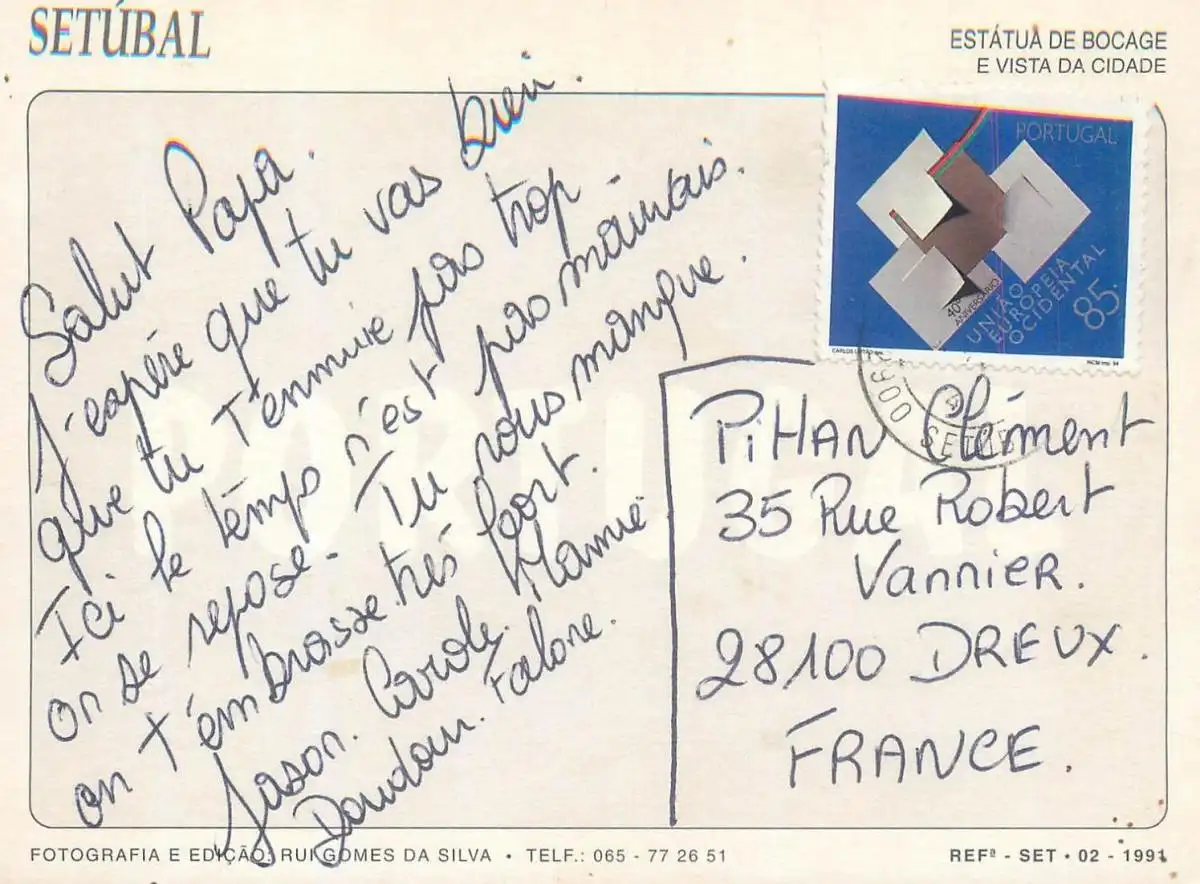 SETÚBAL
ESTÁTUA DE BOCAGE
E VISTA DA CIDADE
Salut Papa.
J'espére que tu vas bien.
que tu t'ennuie pas trop -
Ici le temps n'est pas mauvais.
on se repose - Tu nous manque.
on t'embrasse trés fort.
Jason. Carole. Mamie
Doudou. Falone.
PORTUGAL
40º
ANIVERSÁRIO
UNIÃO
EUROPEIA
OCIDENTAL
85.
CARLOS LEITÃO
INCM
PORTUGAL
SET
PiHAN Clément
35 Rue Robert
Vannier.
28100 DREUX.
FRANCE.
FOTOGRAFIA E EDIÇÃO: RUI GOMES DA SILVA • TELF.: 065 - 77 26 51
REFª - SET • 02 - 1991